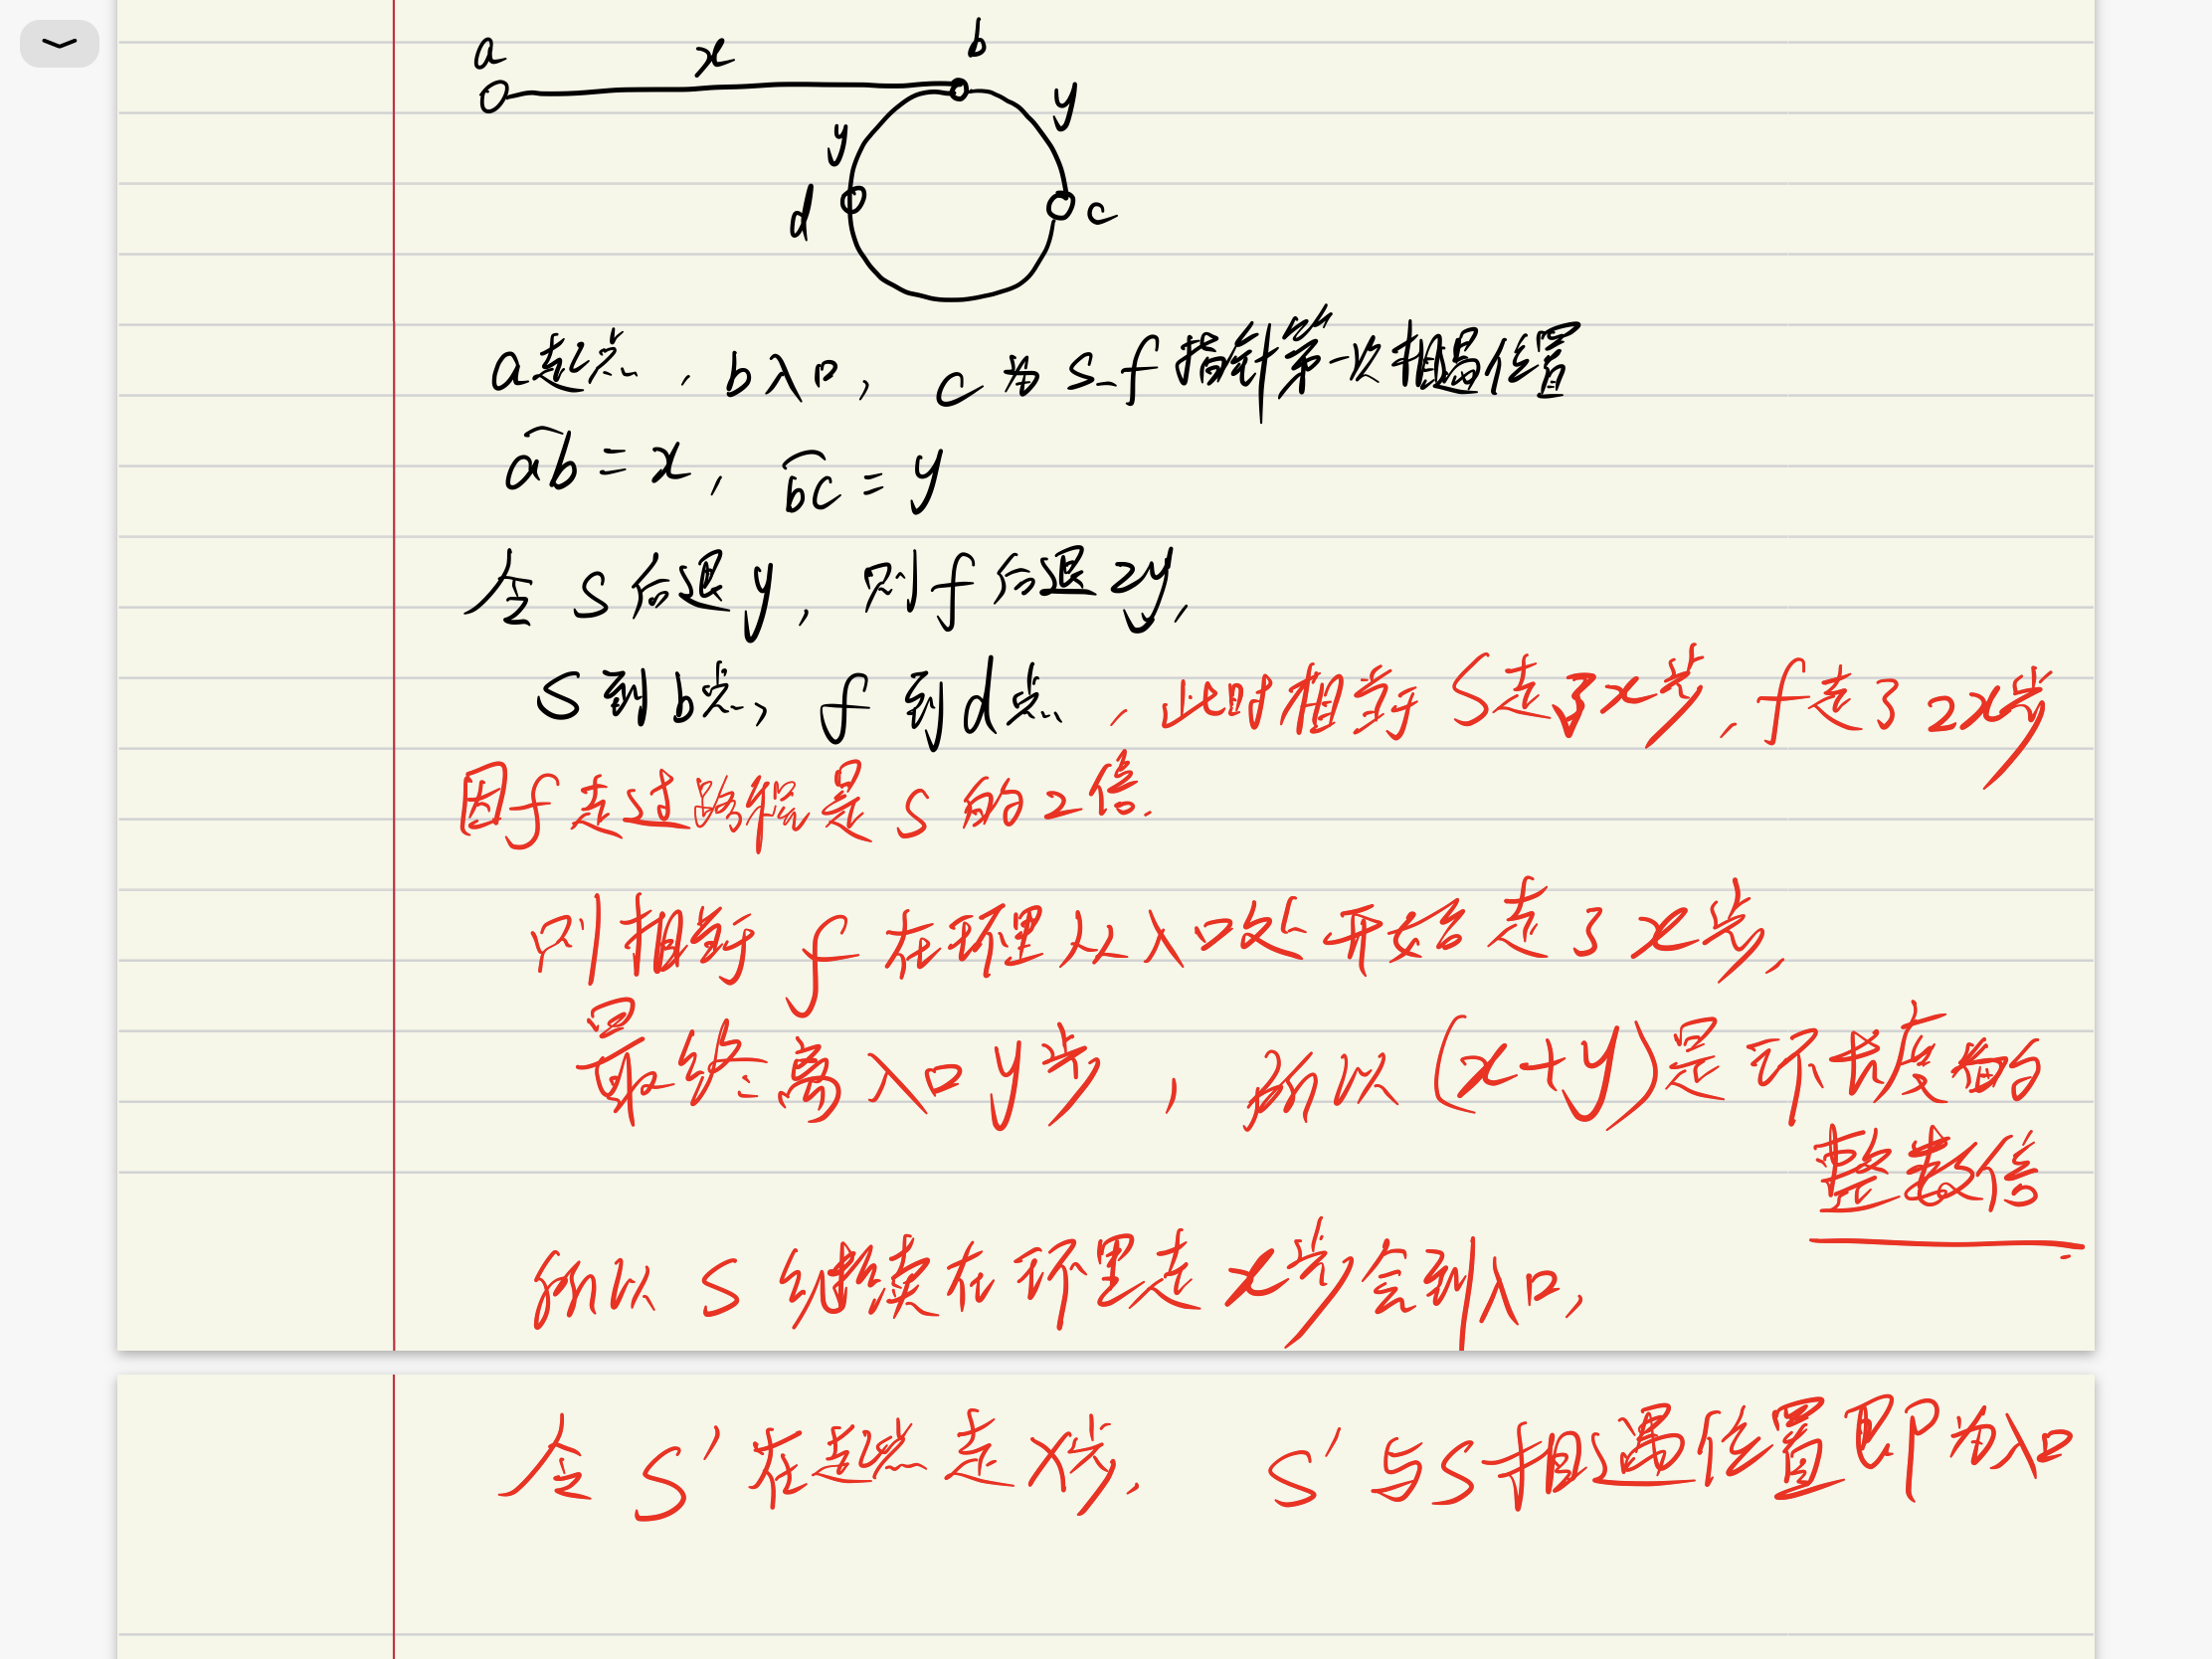 a x b
y y
d c
a起点，b入口，c为s_f指针第一次相遇位置
ab=x，bc=y
令s后退y，则f后退2y，
s到b点，f到d点，此时相当于s走了x步，f走了2x步
因f走过路程是s的2倍.
则相当于f在环里从入口处开始走了x步，
最终离入口y步，所以(x+y)是环长度的
整数倍
所以s继续在环里走x步会到入口，
令s'在起点走x步，s'与s相遇位置即为入口